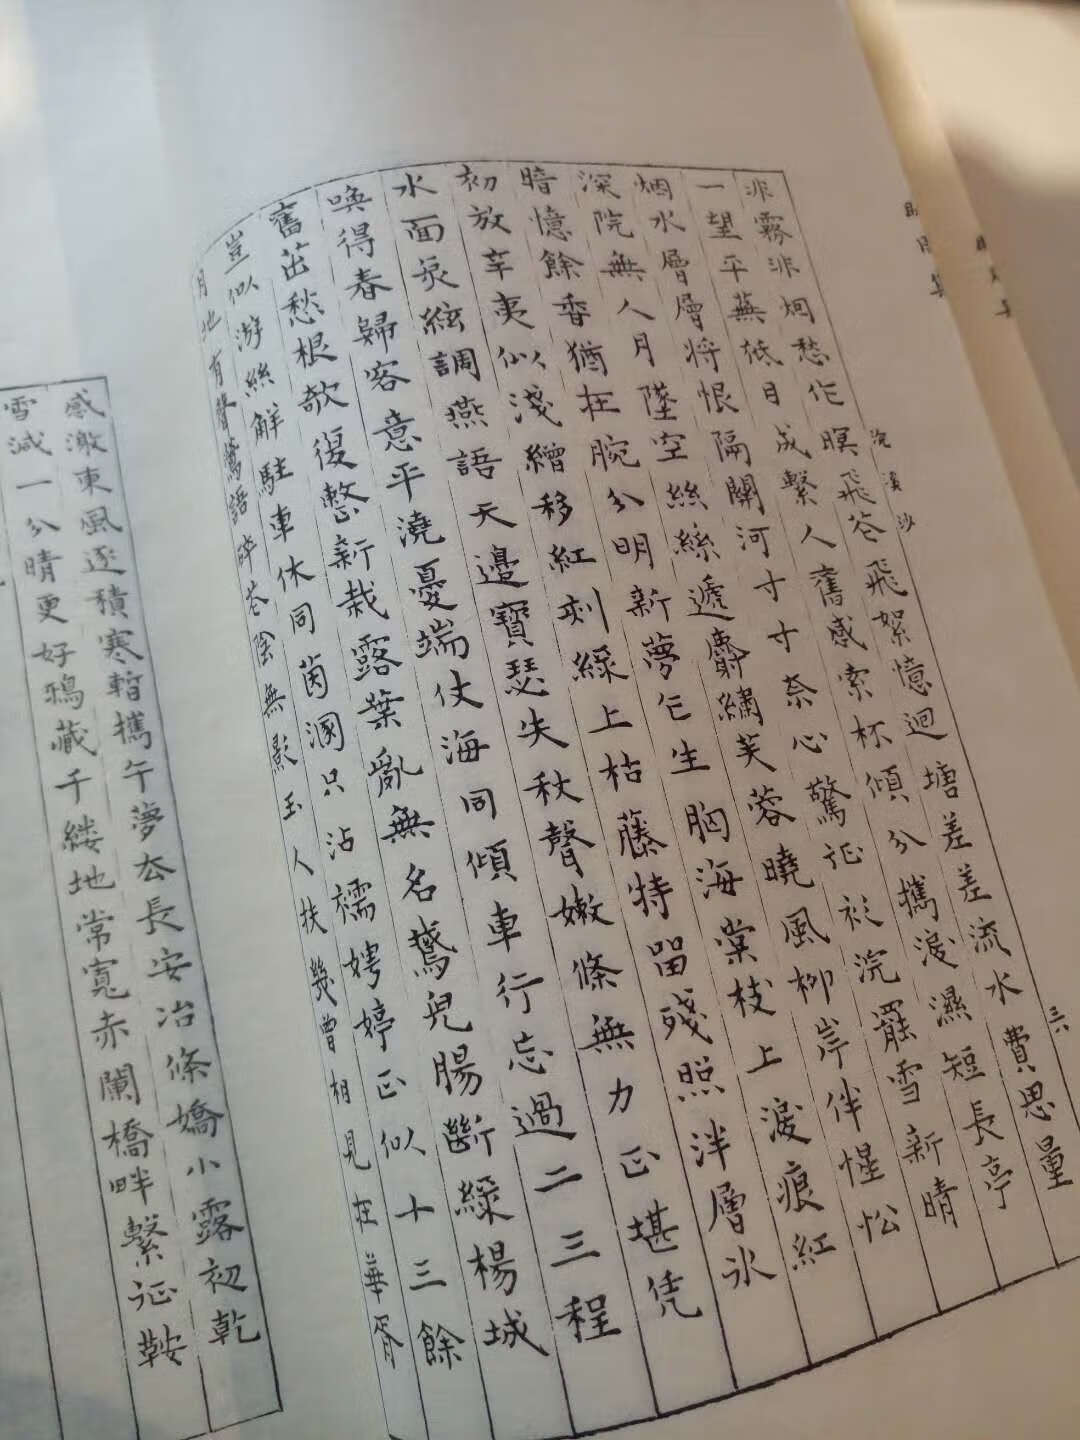 浣溪沙
非霧非烟愁作暝飛花飛絮憶迴塘差差流水費思量
一望平蕪低目成繫人舊感索杯傾分攜淚濕短長亭
烟水層層將恨隔關河寸寸奈心驚征衫浣罷雪新晴
深院無人月墜空絲絲遞麝繡芙蓉曉風柳岸伴惺忪
暗憶餘香猶在腕分明新夢乍生胸海棠枝上淚痕紅
初放辛夷似淺繒移紅刺綠上枯藤特留殘照泮層冰
水面泉絃調燕語天邊寶瑟失秋聲嫩條無力正堪凭
喚得春歸客意平澆憂端仗海同傾車行忘過二三程
舊茁愁根欹復整新栽露葉亂無名鵞兒腸斷綠楊城
豈似游絲解駐車休同茵溷只沾襦娉婷正似十三餘
月地有聲鶯語碎花陰無影玉人扶幾曾相見在華胥
感激東風逐積寒暫攜午夢去長安冶條嬌小露初乾
雪減一分晴更好鴉藏千縷地常寬赤闌橋畔繫征鞍